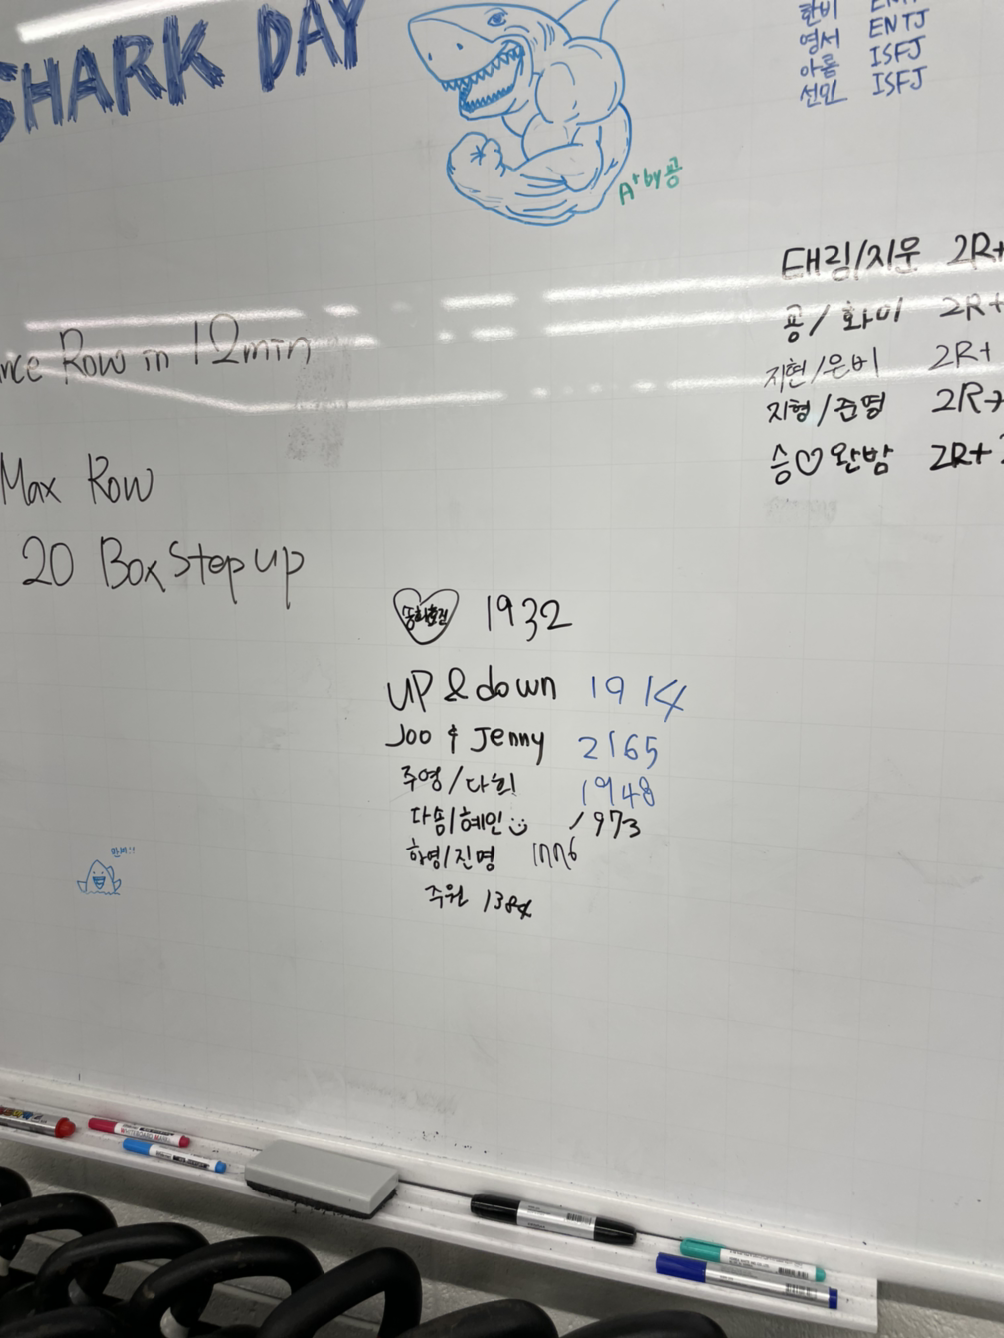 SHARK DAY
한비
영서 ENTJ
아름 ISFJ
선민 ISFJ
Art by 공
태림/지운 2R+
공/화이 2R+
Row in 12min
지현/은비 2R+
지형/준명 2R+
승♡완밤 2R+
Max Row
20 Box Step up
1932
UP & down 1914
Joo & Jenny 2165
주영/다희 1948
다솜/혜인 1973
하영/진명 1776
만세!!
주원 1384